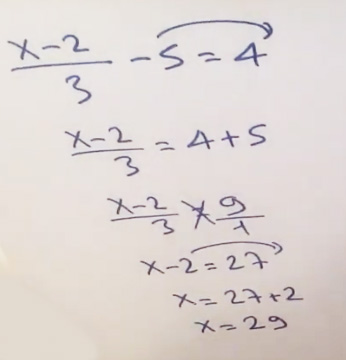 x-2/3 - 5 = 4
x-2/3 = 4+5
x-2/3 × 9/1
x-2 = 27
x = 27+2
x = 29